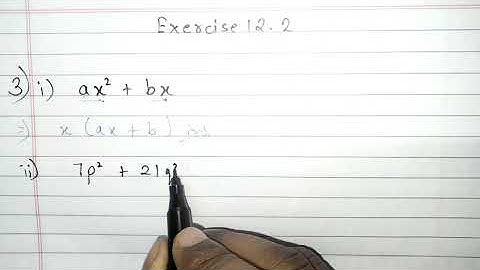 Exercise 12.2
3) i) ax² + bx
=> x (ax + b)
ii) 7p² + 21q²